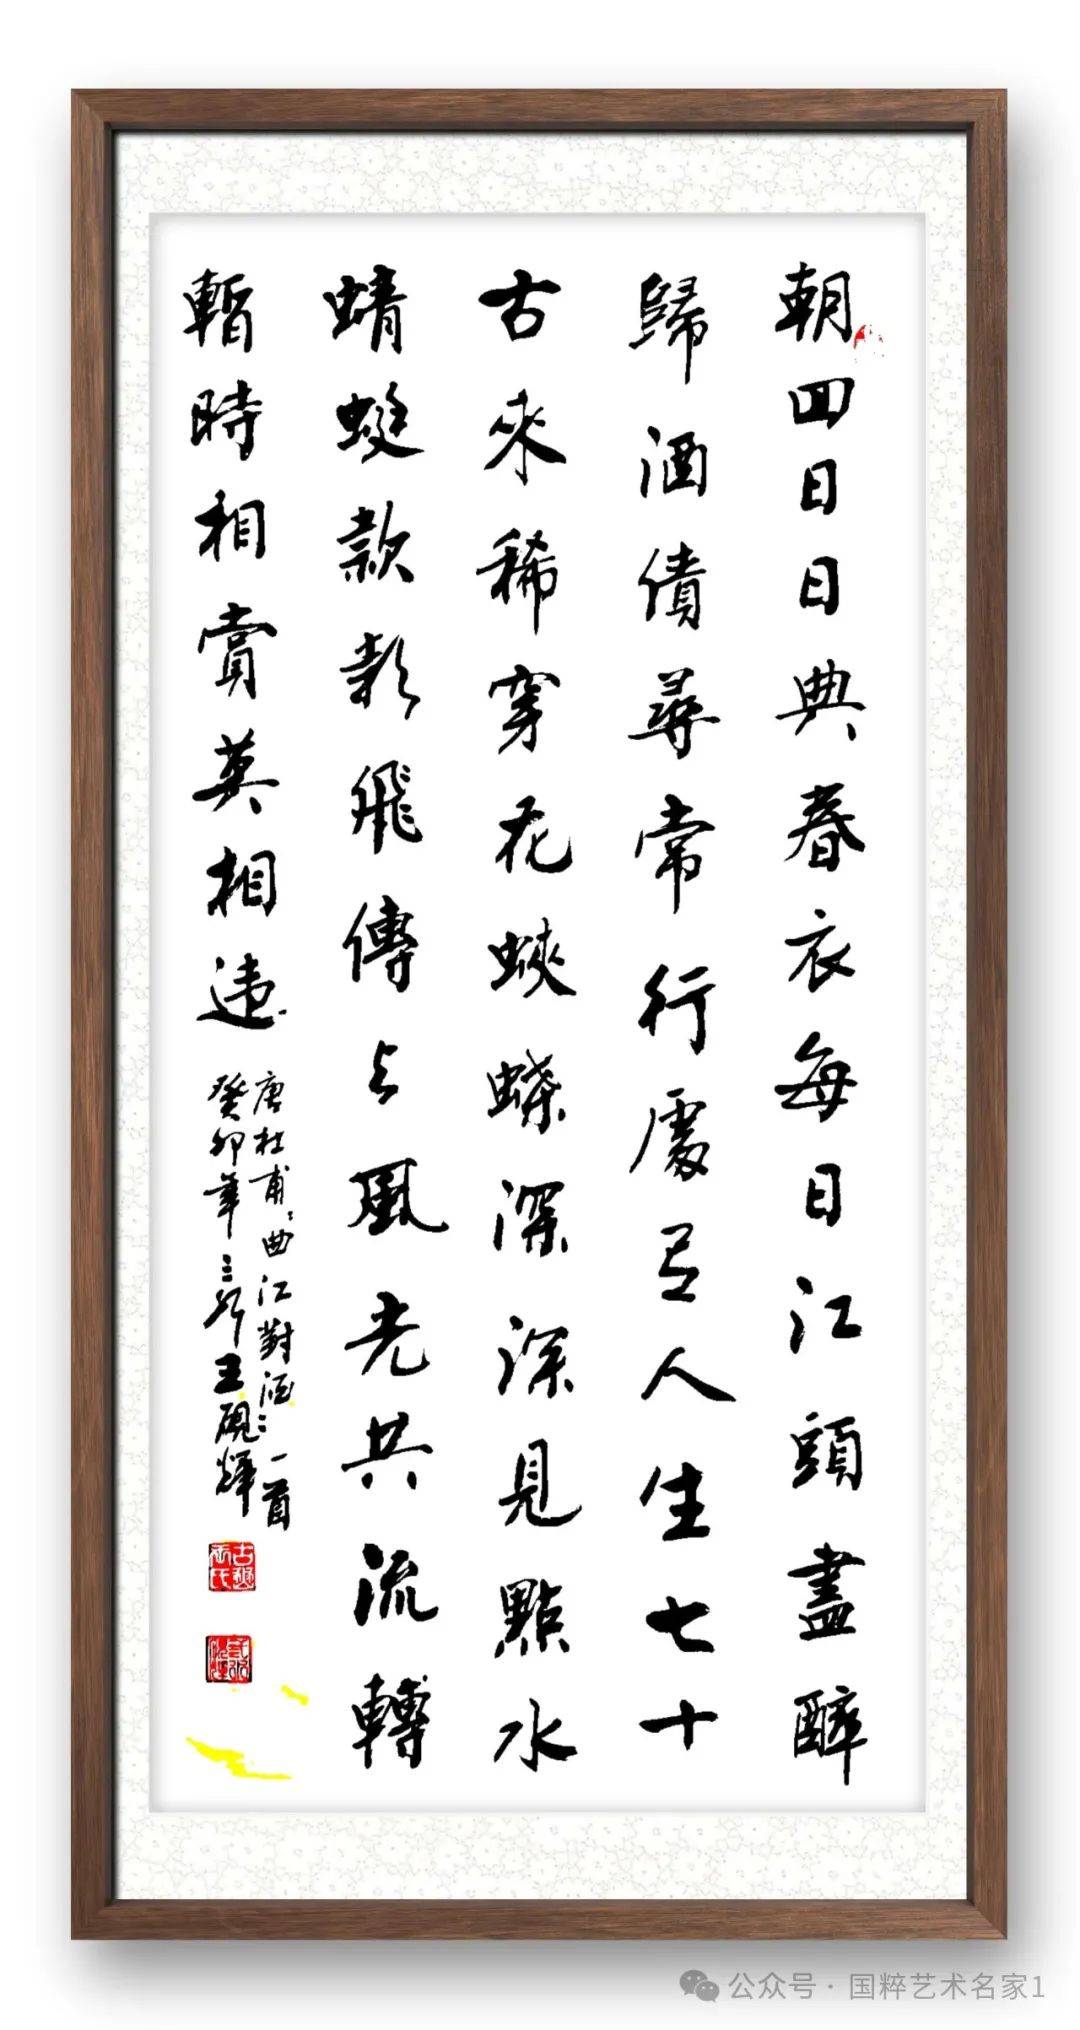 朝回日日典春衣每日江頭盡醉
歸酒債尋常行處有人生七十
古來稀穿花蛺蝶深深見點水
蜻蜓款款飛傳与風光共流轉
暫時相賞莫相違
唐杜甫曲江對酒一首
癸卯年
王硯輝
公众号·国粹艺术名家1